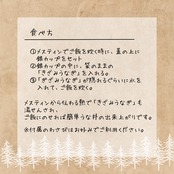 食べ方
①メスティンでご飯を炊く時に、蓋の上に
銀カップをセット
②銀カップの中に、袋のままの
「きざみうなぎ」を入れる。
③「きざみうなぎ」が隠れるぐらいに水を
入れて、ご飯を炊く。
メスティンから伝わる熱で「きざみうなぎ」も
温せんされ、
ご飯にのせれば簡単うな丼の出来上がりです。
※付属のわさびはお好みでご利用ください。